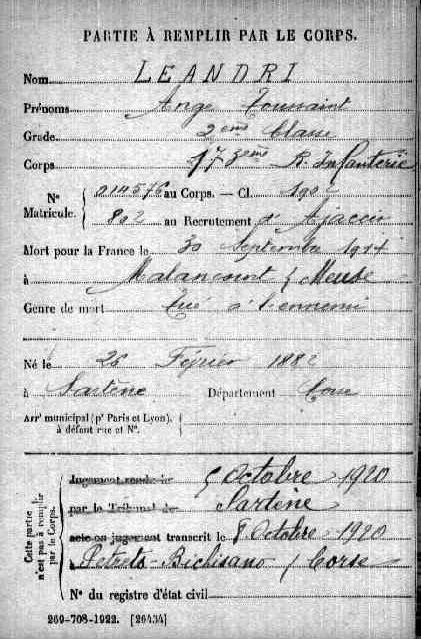 PARTIE À REMPLIR PAR LE CORPS.
Nom LEANDRI
Prénoms Ange Toussaint
Grade 2ème Classe
Corps 173ème R. Infanterie
N° Matricule. 014576 au Corps. — Cl. 1902
802 au Recrutement d'Ajaccio
Mort pour la France le 30 Septembre 1914
à Malancourt (Meuse
Genre de mort tué à l'ennemi
Né le 26 Février 1882
à Sartène Département Corse
Arrt municipal (pr Paris et Lyon),
à défaut rue et N°.
Cette partie n'est pas à remplir par le Corps.
Jugement rendu le 5 Octobre 1920
par le Tribunal de Sartène
acte ou jugement transcrit le 8 Octobre 1920
à Petreto-Bichisano (Corse
N° du registre d'état civil
269-708-1922. [26434]